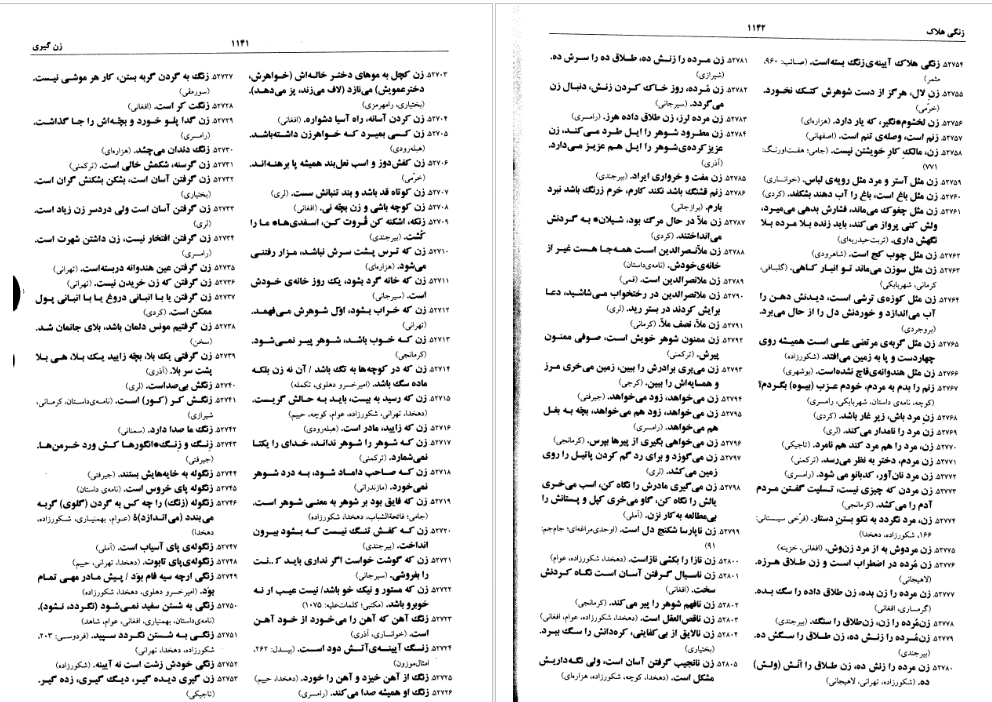 ۱۱۴۱
زن گیری
۵۲۷۰۳. زن کچل به موهای دختر خاله‌اش (خواهرش،
دخترعمویش) می‌نازد (لاف می‌زند، پز می‌دهد).
(بختیاری، رامهرمزی)
۵۲۷۰۴. زن کردن آسانه، راه آسیا دشواره. (افغانی)
۵۲۷۰۵. زن کسی بمیرد که خواهرزن داشته‌باشد.
(هیله‌رودی)
۵۲۷۰۶. زن کفش‌دوز و اسب نعل‌بند همیشه پا برهنه‌اند.
(خرّمی)
۵۲۷۰۷. زن کوتاه قد باشد و بند تنبانش سست. (لری)
۵۲۷۰۸. زن کوچه باشی و زن بچّه نی. (افغانی)
۵۲۷۰۹. زنکه، اشکنه کن قُروت کن، اسفدی‌ها* ما را
کُشت. (بیرجندی)
۵۲۷۱۰. زن که ترس پشت سرش نباشد، مزار رفتنی
می‌شود. (هزاره‌ای)
۵۲۷۱۱. زن که خانه گرد بشود، یک روز خانه‌ی خودش
است. (سیرجانی)
۵۲۷۱۲. زن که خراب بشود، اوّل شوهرش می‌فهمد.
(تهرانی)
۵۲۷۱۳. زن که خوب باشد، شوهر پیر نمی‌شود.
(کرمانجی)
۵۲۷۱۴. زن که در کوچه‌ها به تگ باشد / آن نه زن بلکه
ماده سگ باشد. (امیرخسرو دهلوی، تکمله)
۵۲۷۱۵. زن که رسید به بیست، باید به حالش گریست.
(دهخدا، تهرانی، شکورزاده، عوام، کوچه، حییم)
۵۲۷۱۶. زن که زایید، مادر است. (هیله‌رودی)
۵۲۷۱۷. زن که شوهر را شوهر نداند، خدای را یکتا
نمی‌شمارد. (ترکمنی)
۵۲۷۱۸. زن که صاحب داماد شود، به درد شوهر
نمی‌خورد. (مازندرانی)
۵۲۷۱۹. زن که فایق بود بر شوهر به معنی شوهر است.
(جامی؛ فاتحةالشباب، دهخدا، شکورزاده)
۵۲۷۲۰. زن که کفش تنگ نیست که بشود بیرون
انداخت. (بیرجندی)
۵۲۷۲۱. زن که گوشت خواست اگر نداری باید
را بفروشی. (سیرجانی)
۵۲۷۲۲. زن که مستور و نیک خو باشد/ نیست عیب ار نه
خوبرو باشد. (مکتبی؛ کلمات‌علیه: ۱۰۷۵)
۵۲۷۲۳. زنگ آهن که آهن را می‌خورد از خود آهن
است. (خوانساری، آذری)
۵۲۷۲۴. زنگ آیینه‌ی آتش دود است. (بیدل: ۲۶۲،
امثال‌موزون)
۵۲۷۲۵. زنگ از آهن خیزد و آهن را خورد. (دهخدا، حییم)
۵۲۷۲۶. زنگ او همیشه صدا می‌کند. (رامسری)
۵۲۷۲۷. زنگ به گردن گربه بستن، کار هر موشی نیست.
(سورمقی)
۵۲۷۲۸. زنگت کر است. (افغانی)
۵۲۷۲۹. زن گدا پلو خورد و بچّه‌اش را جا گذاشت.
(رامسری)
۵۲۷۳۰. زنگ دندان می‌چشد. (هزاره‌ای)
۵۲۷۳۱. زن گرسنه، شکمش خالی است. (ترکمنی)
۵۲۷۳۲. زن گرفتن آسان است، بشکن بشکنش گران است.
(بختیاری)
۵۲۷۳۳. زن گرفتن آسان است ولی دردسر زن زیاد است.
(لری)
۵۲۷۳۴. زن گرفتن افتخار نیست، زن داشتن شهرت است.
(رامسری)
۵۲۷۳۵. زن گرفتن عین هندوانه دربسته‌است. (تهرانی)
۵۲۷۳۶. زن گرفتن که زن خریدن نیست. (تهرانی)
۵۲۷۳۷. زن گرفتن یا با انبانی دروغ یا با انبانی پول
ممکن است. (کردی)
۵۲۷۳۸. زن گرفتیم مونس دلمان باشد، بلای جانمان شد.
(سخن)
۵۲۷۳۹. زن گرفتی یک بلا، بچّه زایید یک بلا، هی بلا
پشت سر بلا. (آذری)
۵۲۷۴۰. زنگش بی‌صداست. (لری)
۵۲۷۴۱. زنگش کر (کور) است. (نامه‌ی‌داستان، کرمانی،
شیرازی)
۵۲۷۴۲. زنگ ما صدا دارد. (سمنانی)
۵۲۷۴۳. زنگ و زنگ* انگورها کش ورد خرمن‌ها.
(جیرفتی)
۵۲۷۴۴. زنگوله به خایه‌هایش بستند. (جیرفتی)
۵۲۷۴۵. زنگوله پای خروس است. (نامه‌ی داستان)
۵۲۷۴۶. زنگوله (زنگ) را چه کس به گردن (گلوی) گربه
می‌بندد (می‌اندازد)؟ (عوام، بهمنیاری، شکورزاده،
دهخدا)
۵۲۷۴۷. زنگوله‌ی پای آسیاب است. (آملی)
۵۲۷۴۸. زنگوله‌ی پای تابوت. (دهخدا، تهرانی، حییم)
۵۲۷۴۹. زنگی ارچه سیه فام بوَد / پیش مادر مهی تمام
بوَد. (امیرخسرو دهلوی، دهخدا، شکورزاده)
۵۲۷۵۰. زنگی به شستن سفید نمی‌شود (نگردد، نشود).
(نامه‌ی‌داستان، بهمنیاری، افغانی، عوام، شاهد)
۵۲۷۵۱. زنگی به شستن نگردد سپید. (فردوسی: ۲۰۳،
شکورزاده، دهخدا، تهرانی)
۵۲۷۵۲. زنگی خودش زشت است نه آیینه. (شکورزاده)
۵۲۷۵۳. زن گیری دیده گیر، دیگ گیری، زده گیر.
(تاجیکی)
۱۱۴۲
زنگی هلاک
۵۲۷۵۴. زنگی هلاک آیینه‌ی زنگ بسته‌است. (صائب: ۹۶۰،
مثمر)
۵۲۷۵۵. زن لال، هرگز از دست شوهرش کتک نخورد.
(خرّمی)
۵۲۷۵۶. زن لخشوم*نگیر، که یار دارد. (هزاره‌ای)
۵۲۷۵۷. زنم است، وصله‌ی تنم است. (اصفهانی)
۵۲۷۵۸. زن، مالکِ کارِ خویشتن نیست. (جامی؛ هفت‌اورنگ:
۷۷۱)
۵۲۷۵۹. زن مثل آستر و مرد مثل رویه‌ی لباس. (خوانساری)
۵۲۷۶۰. زن مثل باغ است، باغ را آب دهند بشکفد. (کردی)
۵۲۷۶۱. زن مثل چغوک می‌ماند، فشارش بدهی می‌میرد،
ولش کنی پرواز می‌کند، باید زنده بلا مرده بلا
نگهش داری. (تربت‌حیدریه‌ای)
۵۲۷۶۲. زن مثل چوب کج است. (شاهرودی)
۵۲۷۶۳. زن مثل سوزن می‌ماند تو انبار کاهی. (گلبافی،
کرمانی، شهربابکی)
۵۲۷۶۴. زن مثل کوزه‌ی ترشی است، دیدنش دهن را
آب می‌اندازد و خوردنش دل را از حال می‌برد.
(بروجردی)
۵۲۷۶۵. زن مثل گربه‌ی مرتضی علی است همیشه روی
چهاردست و پا به زمین می‌افتد. (شکورزاده)
۵۲۷۶۶. زن مثل هندوانه‌ی‌قاچ نشده‌است. (بوشهری)
۵۲۷۶۷. زنم را بدم به مردم، خودم عزب (بیوه) بگردم؟
(کوچه، نامه‌ی داستان، شهربابکی، رامسری)
۵۲۷۶۸. زن مرد باش، زیر غار باشد. (کردی)
۵۲۷۶۹. زن مرد را نامدار می‌کند. (لری)
۵۲۷۷۰. زن، مرد را هم مرد کند هم نامرد. (تاجیکی)
۵۲۷۷۱. زن مردم، دختر به نظر می‌رسد. (ترکمنی)
۵۲۷۷۲. زن مرد نان‌آور، کدبانو می شود. (رامسری)
۵۲۷۷۳. زن مردن که چیزی نیست، تسلیت گفتن مردم
آدم را می‌کشد. (کرمانجی)
۵۲۷۷۴. زن، مرد نگردد به نکو بستن دستار. (فرّخی سیستانی:
۱۶۶، شکورزاده، دهخدا)
۵۲۷۷۵. زن مردوش به از مرد زن‌وش. (افغانی، خزینه)
۵۲۷۷۶. زن مُرده در اضطراب است و زن طلاق هرزه.
(لاهیجانی)
۵۲۷۷۷. زن مرده را زن بده، زن طلاق داده را سگ بده.
(گرمساری، افغانی)
۵۲۷۷۸. زن‌مُرده را زن، زن‌طلاق را سنگ. (بیرجندی)
۵۲۷۷۹. زن‌مُرده را زنش ده، زن طلاق را سگش ده.
(بیرجندی)
۵۲۷۸۰. زن مرده را زنش ده، زن طلاق را آتش (ولش)
ده. (شکورزاده، تهرانی، لاهیجانی)
۵۲۷۸۱. زن مرده را زنش ده، طلاق ده را سرش ده.
(شیرازی)
۵۲۷۸۲. زن مُرده، روز خاک کردن زنش، دنبال زن
می‌گردد. (سیرجانی)
۵۲۷۸۳. زن مرده لرز، زن طلاق داده هرز. (رامسری)
۵۲۷۸۴. زن مطرود شوهر را ایل طرد می‌کند، زن
عزیزکرده‌ی شوهر را ایل هم عزیز می‌دارد.
(آذری)
۵۲۷۸۵. زن مفت و خرواری ایراد. (بیرجندی)
۵۲۷۸۶. زنم قشنگ باشد نکند کارم، خرم زرنگ باشد نبرد
بارم. (برازجانی)
۵۲۷۸۷. زن ملاّ در حال مرگ بود، شیلان* به گردنش
می‌انداختند. (کردی)
۵۲۷۸۸. زن ملانصرالدین است همه‌جا هست غیر از
خانه‌ی‌خودش. (نامه‌ی‌داستان)
۵۲۷۸۹. زن ملانصرالدین است. (قمی)
۵۲۷۹۰. زن ملانصرالدین در رختخواب می‌شاشید، دعا
برایش کردند در بستر رید. (لری)
۵۲۷۹۱. زن ملاّ، نصف ملاّ. (کرمانی)
۵۲۷۹۲. زن ممنون شوهر خویش است، صوفی ممنون
پیرش. (ترکمنی)
۵۲۷۹۳. زن می‌بری برادرش را ببین، زمین می‌خری مرز
و همسایه‌اش را ببین. (کرجی)
۵۲۷۹۴. زن می‌خواهد، زود می‌خواهد. (جیرفتی)
۵۲۷۹۵. زن می‌خواهد، زود هم می‌خواهد، بچّه به بغل
هم می‌خواهد. (رامسری)
۵۲۷۹۶. زن می‌خواهی بگیری از پیرها بپرس. (کرمانجی)
۵۲۷۹۷. زن می‌گوزد و برای رد گم کردن پاتیل را روی
زمین می‌کشد. (لری)
۵۲۷۹۸. زن می‌گیری مادرش را نگاه کن، اسب می‌خری
یالش را نگاه کن، گاو می‌خری کپل و پستانش را
بی‌مطالعه به‌کار نزن. (آملی)
۵۲۷۹۹. زن ناپارسا شکنج دل است. (اوحدی‌مراغه‌ای؛ جام‌جم:
۹۱)
۵۲۸۰۰. زن نازا را بکشی نازاست. (دهخدا، شکورزاده، عوام)
۵۲۸۰۱. زن ناسپال گرفتن آسان است نگاه کردنش
سخت. (افغانی)
۵۲۸۰۲. زن نافهم شوهر را پیر می‌کند. (کرمانجی)
۵۲۸۰۳. زن ناقص‌العقل است. (دهخدا، شکورزاده، عوام، افغانی)
۵۲۸۰۴. زن نالایق از بی‌کفایتی، کره‌دانش را سگ ببرد.
(بختیاری)
۵۲۸۰۵. زن نانجیب گرفتن آسان است، ولی نگه‌داریش
مشکل است. (دهخدا، کوچه، شکورزاده، هزاره‌ای)